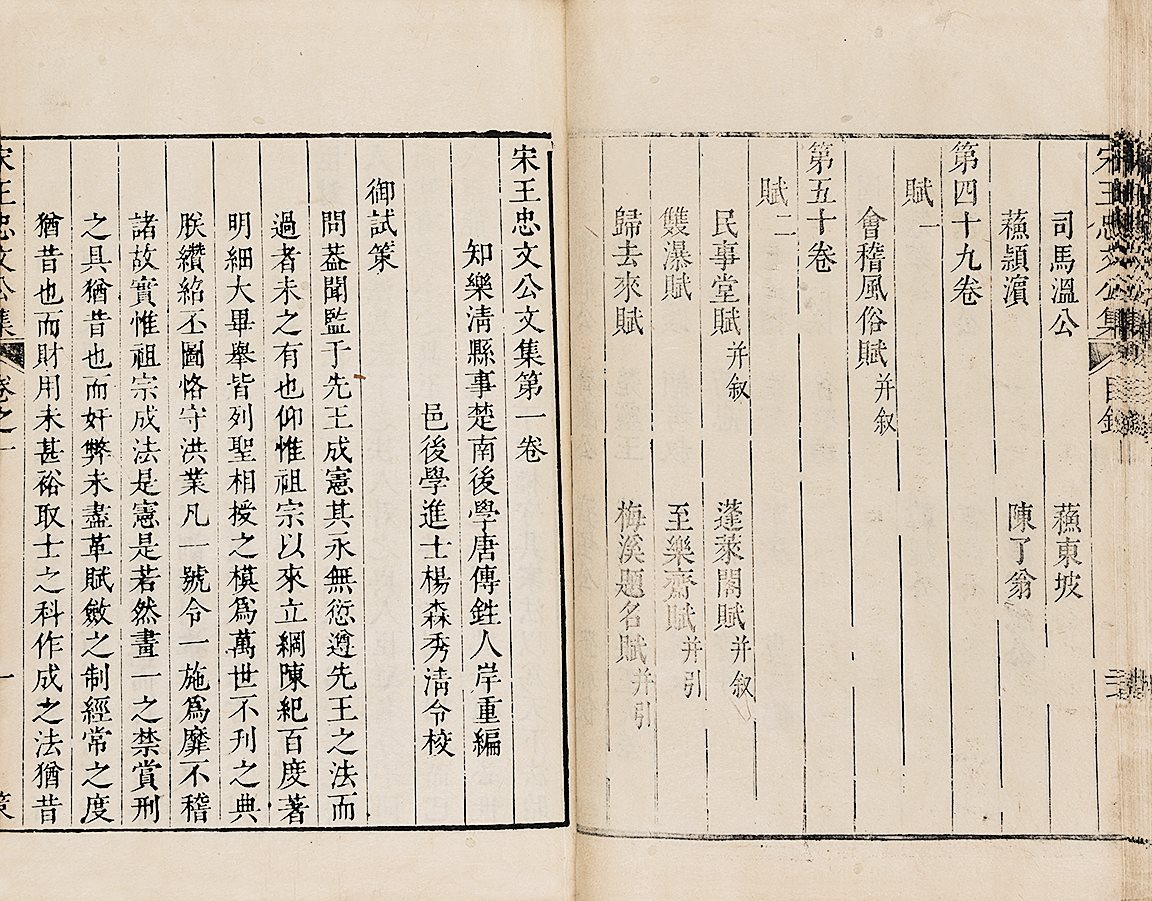 宋王忠文公集 目錄
司馬溫公 蘓東坡
蘓潁濵 陳了翁
第四十九卷
賦一
會稽風俗賦并叙
第五十卷
賦二
民事堂賦并叙 蓬萊閣賦并叙
雙瀑賦 至樂齋賦并引
歸去來賦 梅溪題名賦并引
宋王忠文公文集第一卷
知樂清縣事楚南後學唐傳鉎人岸重編
邑後學進士楊森秀清令校
御試策
問葢聞監于先王成憲其永無愆遵先王之法而
過者未之有也仰惟祖宗以來立綱陳紀百度著
明細大畢舉皆列聖相授之模爲萬世不刊之典
朕纘紹丕圖恪守洪業凡一號令一施爲靡不稽
諸故實惟祖宗成法是憲是若然畫一之禁賞刑
之具猶昔也而奸弊未盡革賦斂之制經常之度
猶昔也而財用未甚裕取士之科作成之法猶昔
宋王忠文公集 卷之一 一 策